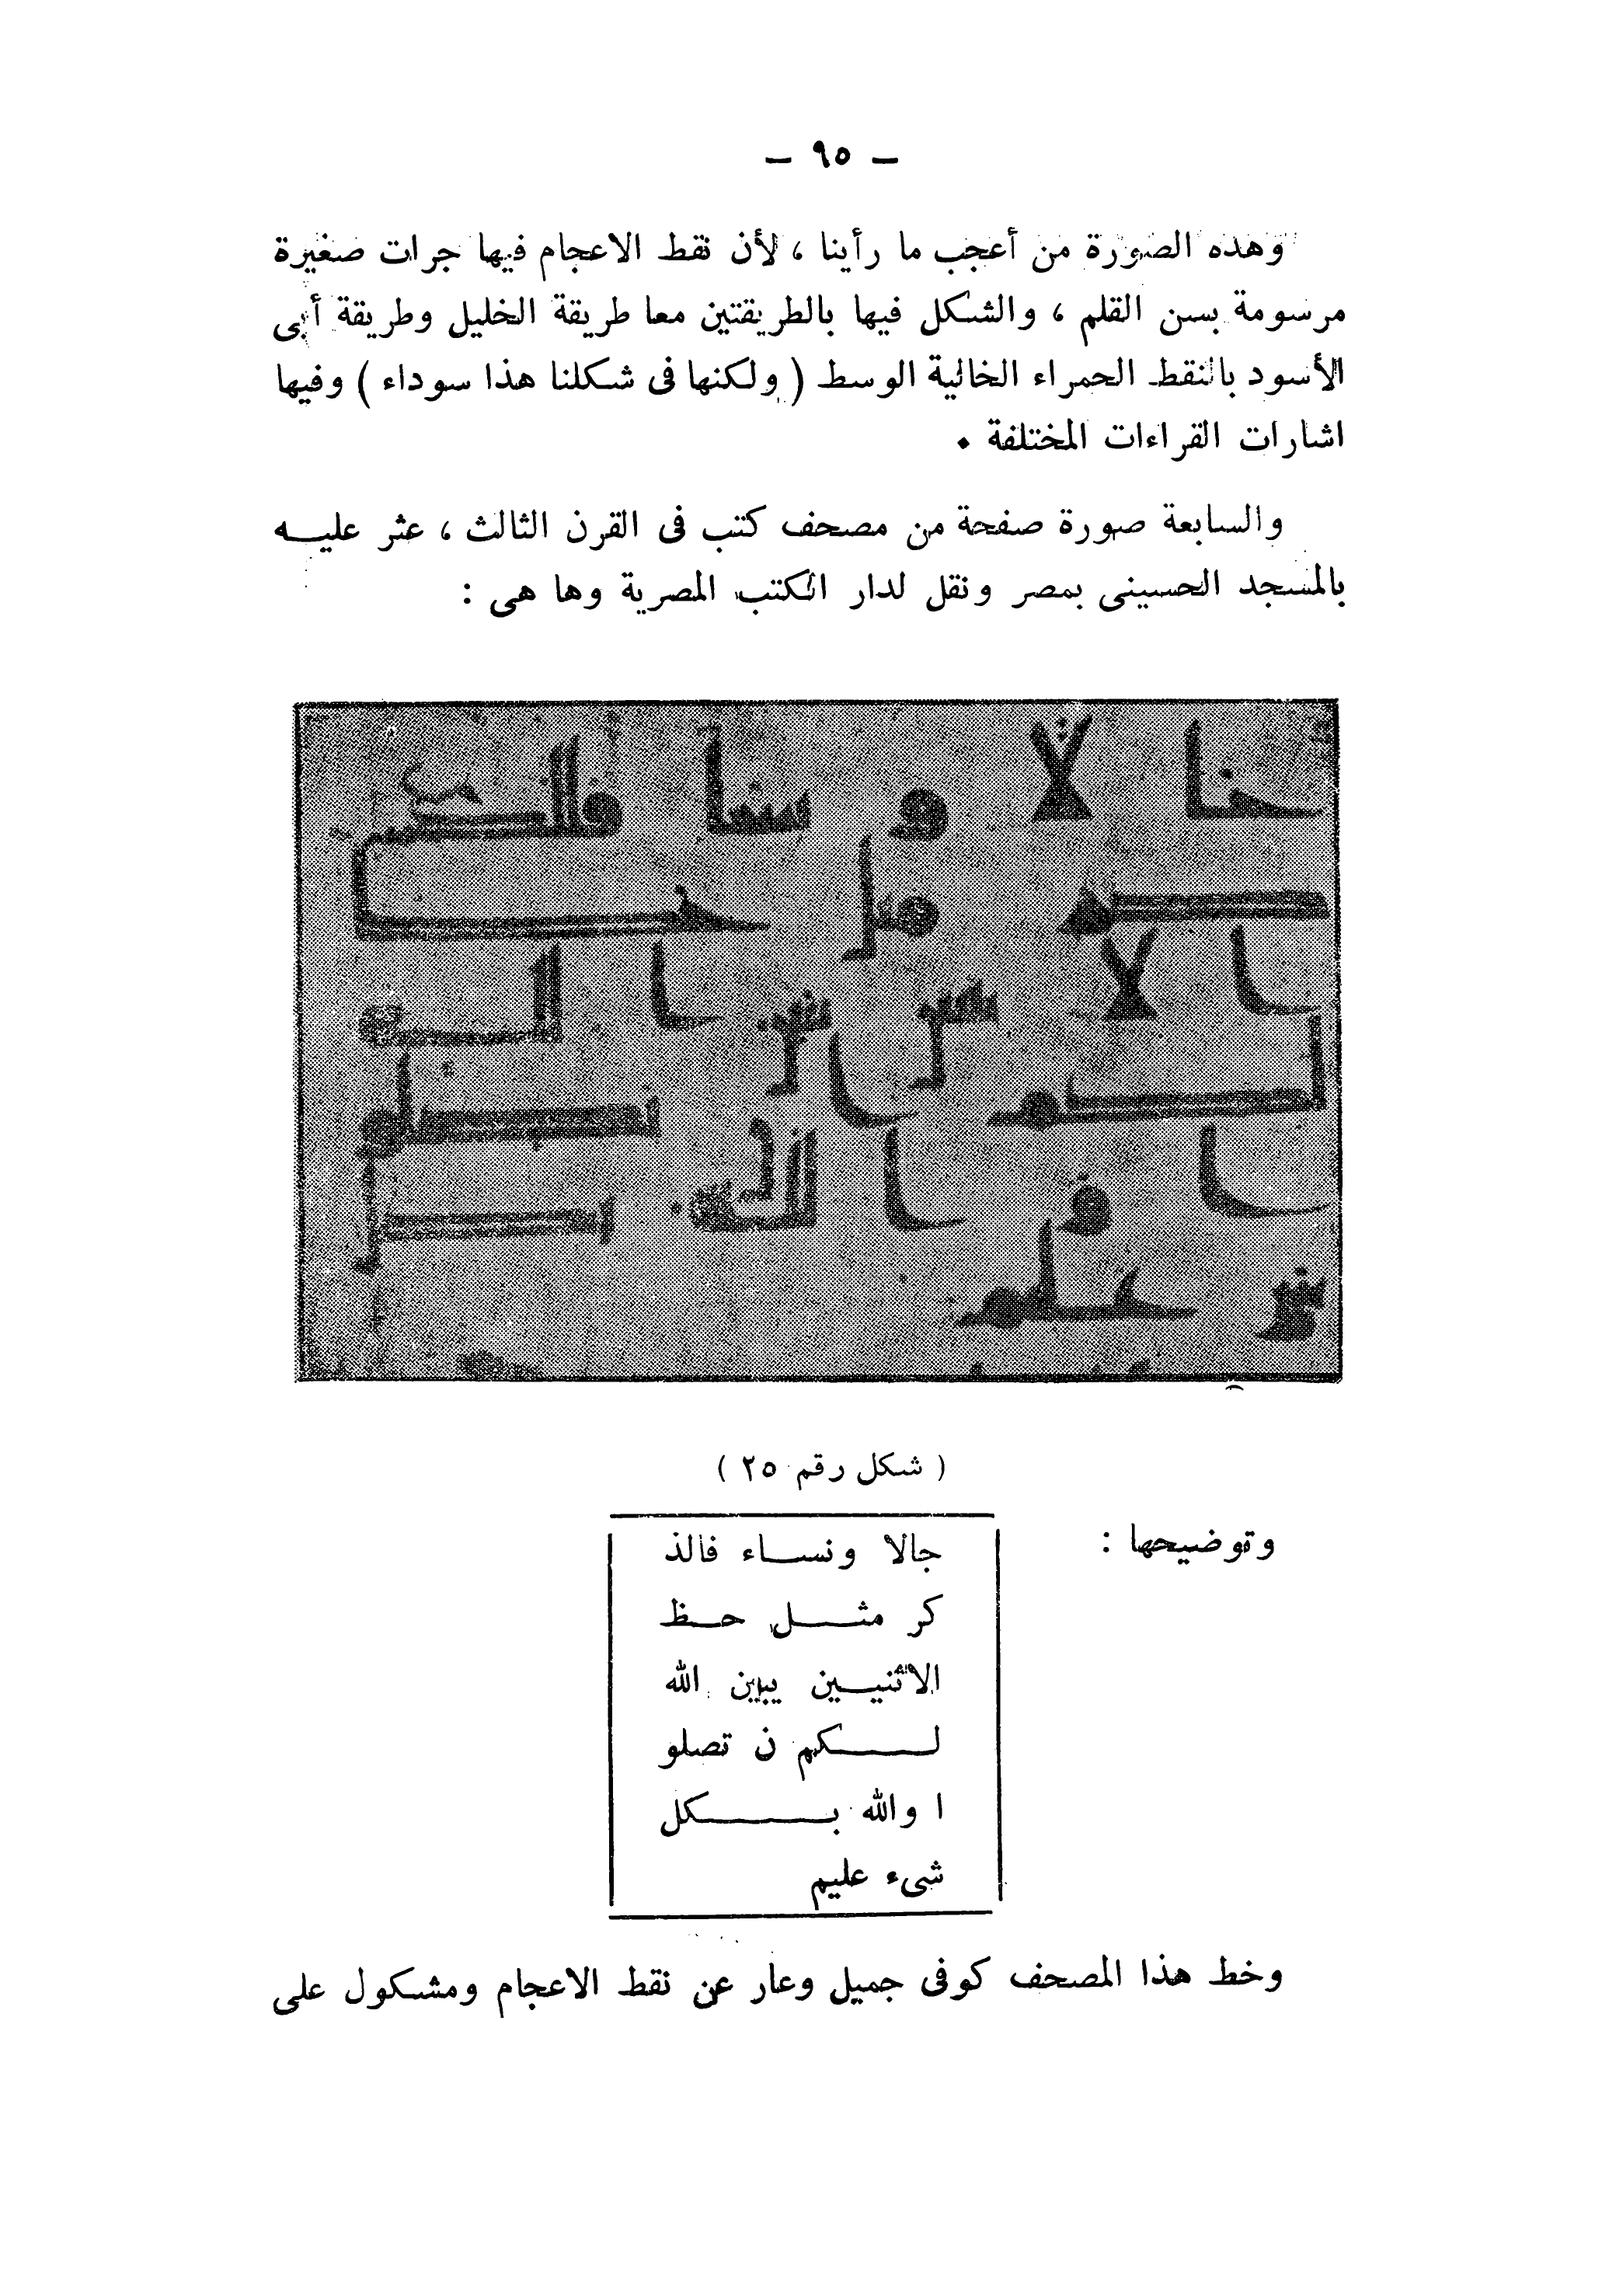 — ٩٥ —
وهذه الصورة من أعجب ما رأينا ، لأن نقط الاعجام فيها جرات صغيرة
مرسومة بسن القلم ، والشكل فيها بالطريقتين معا طريقة الخليل وطريقة أبى
الأسود بالنقط الحمراء الخالية الوسط ( ولكنها فى شكلنا هذا سوداء ) وفيها
اشارات القراءات المختلفة ٠
والسابعة صورة صفحة من مصحف كتب فى القرن الثالث ، عثر عليه
بالمسجد الحسينى بمصر ونقل لدار الكتب المصرية وها هى :
جالا و نسا فالذ
كر مثل حظ
ا لا نثيين يبين ا لله
لكم ا ن تضلو
ا و ا لله بكل
شى عليم
( شكل رقم ٢٥ )
وتوضيحها :
جالا ونساء فالذ
كر مثل حظ
الانثيين يبين الله
لكم ن تصلو
ا والله بكل
شىء عليم
وخط هذا المصحف كوفى جميل وعار عن نقط الاعجام ومشكول على